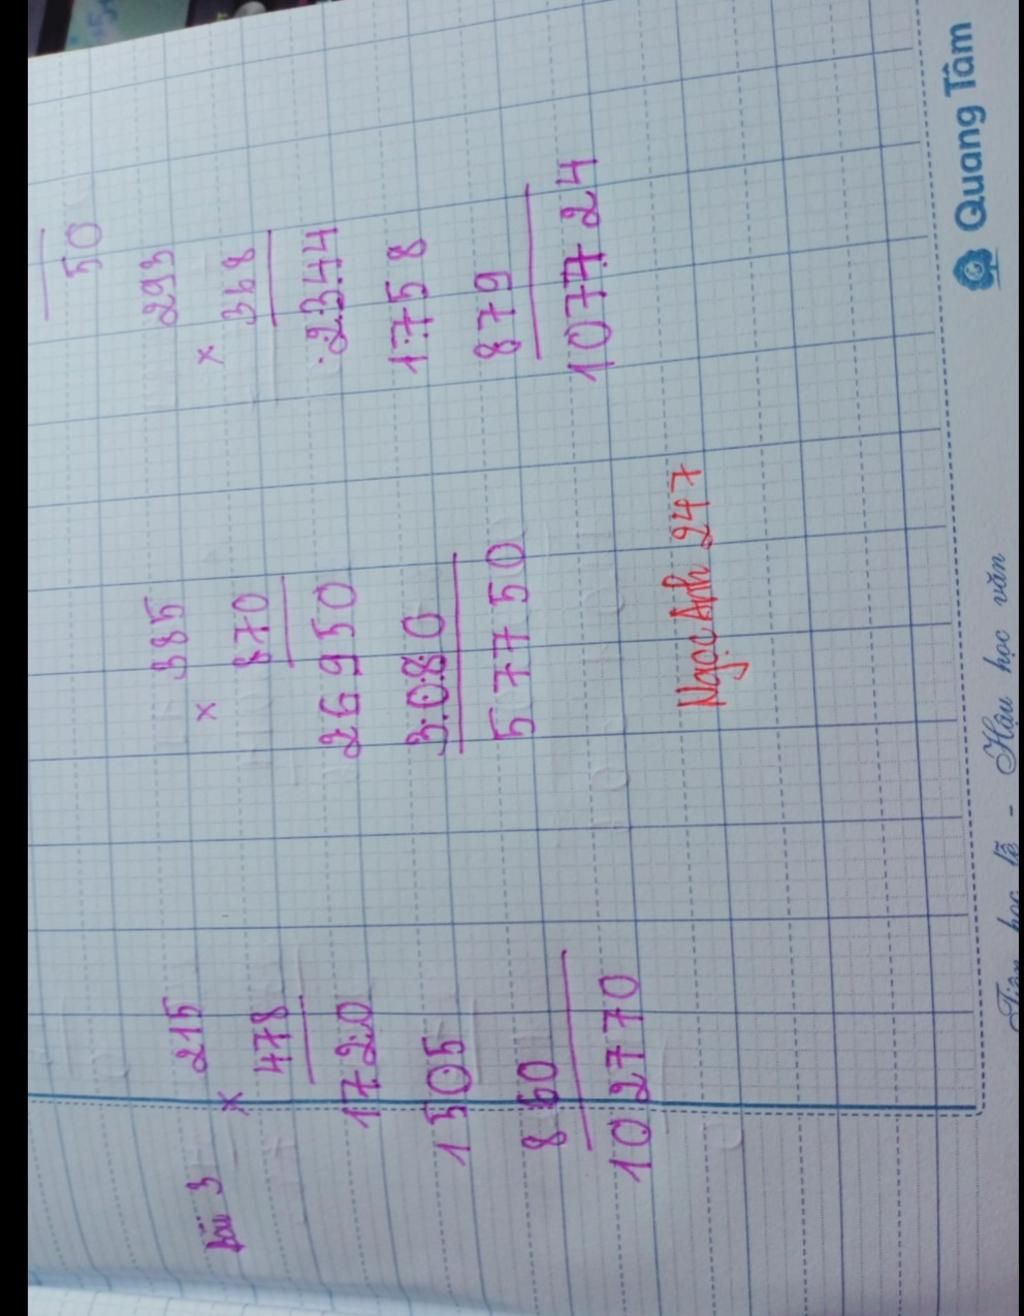 50
bài 3
215
×
478
1720
1505
860
102770
385
×
870
26950
3080
57750
293
×
368
2344
1758
879
107724
Ngọc Anh 247
Quang Tâm
Tiên học lễ - Hậu học văn